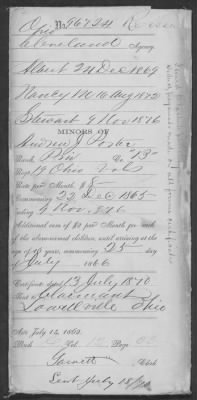 Ohio
No. 96724
Cleveland Agency
Albert 24 Dec 1869
Nancy M 16 Aug 1872
Stewart 9 Nov 1876
MINORS OF
Andrew J. Porter
Rank Pvt Co "B"
Regt 19 Ohio Vols
Rate per Month $8
Commencing 22 Dec 1865
Ending 9 Nov 1876
Additional sum of $2 per month for each
of the abovenamed children, until arriving at the
age of 16 years, commencing 25 day
July 1866
Certificate dated 13 July 1870
Claimant
Lowellville Ohio
Act July 14, 1862.
Book Vol. Page
Garrett Clerk
Sent July 18/70